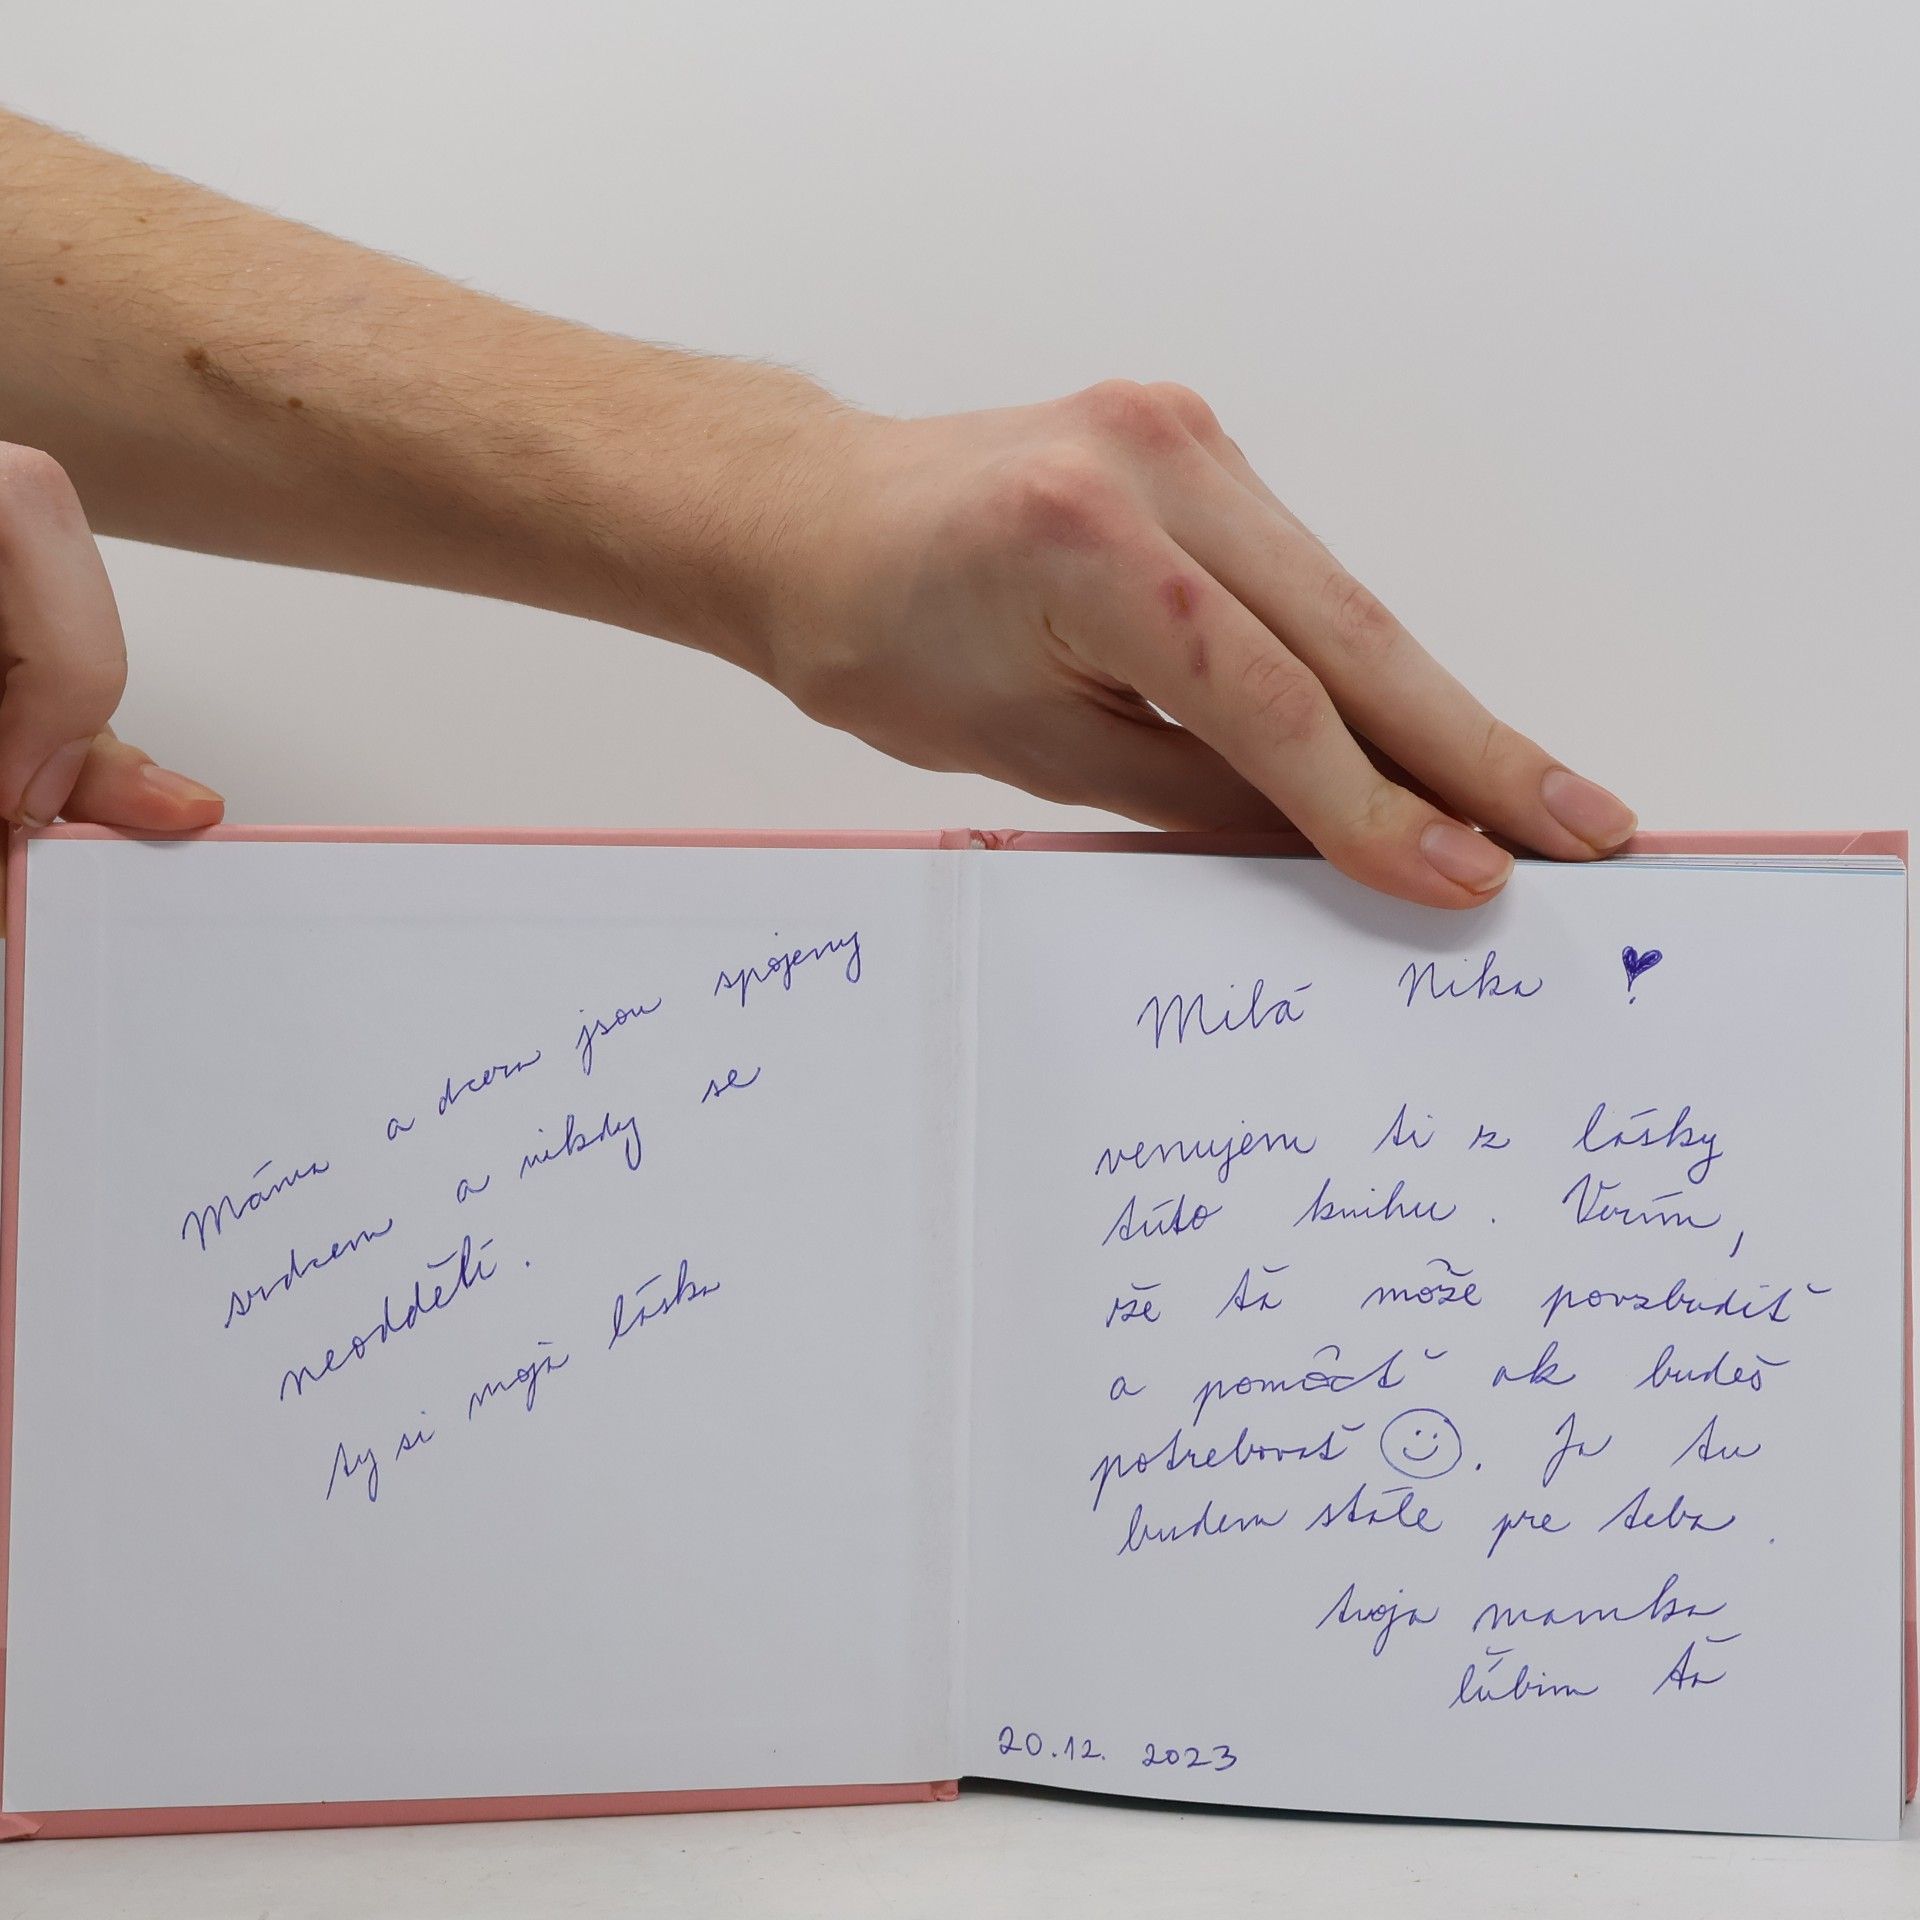 Máma a dcera jsou spojeny
srdcem a nikdy se
neoddělí.
ty si moja láska
Milá Nika !
venujem ti z lásky
túto knihu. Verím,
že ťa môže povzbudiť
a pomôcť ak budeš
potrebovať. Ja tu
budem stále pre teba.
tvoja mamka
ľúbim ťa
20.12. 2023